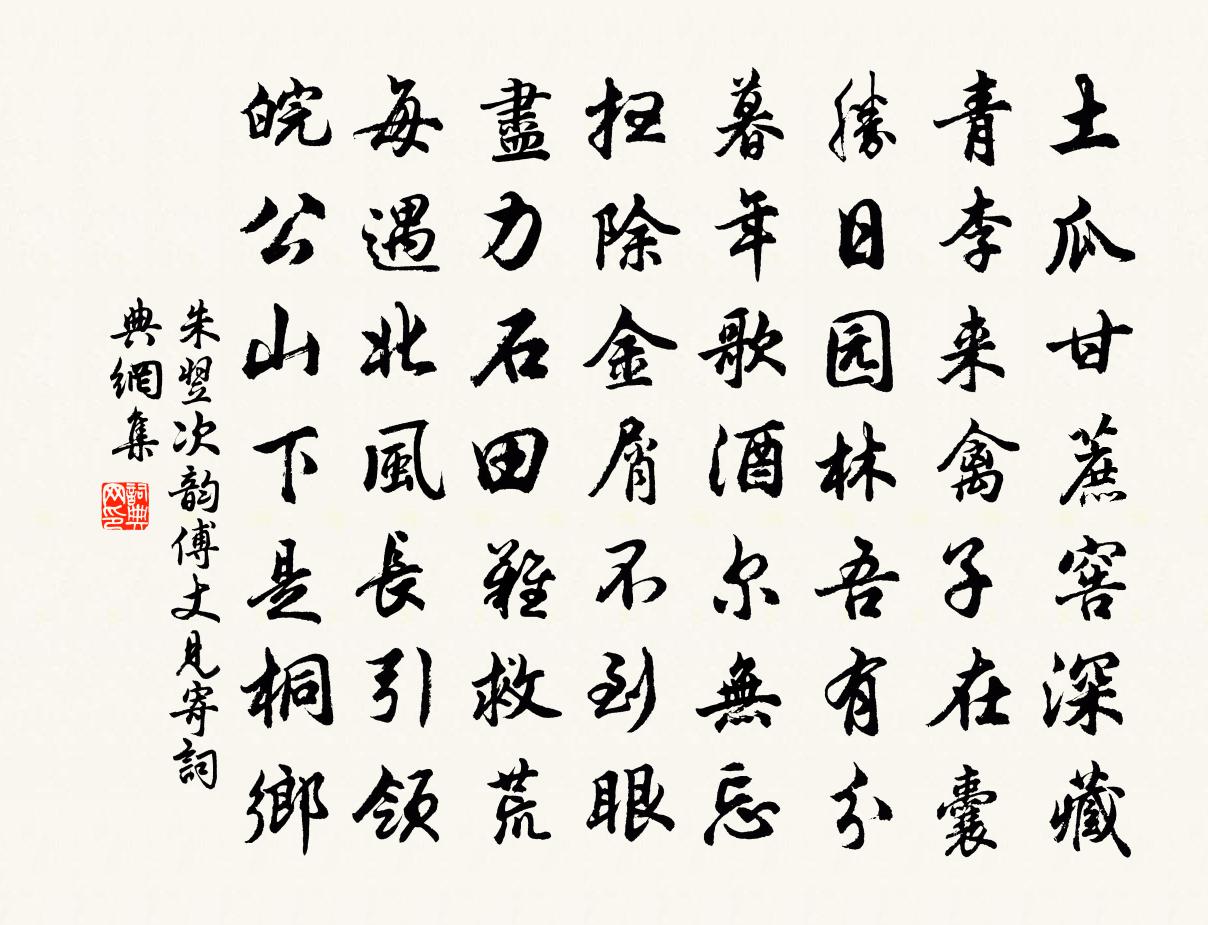 土瓜甘蔗窖深藏
青李来禽子在囊
勝日园林吾有分
暮年歌酒尔無忘
扫除金屑不到眼
盡力石田難救荒
每遇北風長引领
皖公山下是桐鄉
朱翌次韵傅丈見寄詞
典網集
詞典
网印